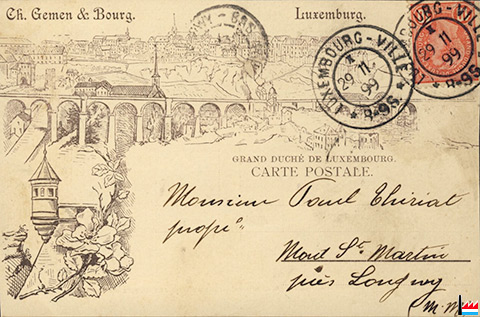 Ch. Gemen & Bourg.
Luxemburg.
LUXEMBOURG-VILLE
29 11 99
8-9S
LUXEMBOURG-VILLE
29 11 99
8-9S
GRAND DUCHÉ DE LUXEMBOURG.
CARTE POSTALE.
Monsieur Paul Thiriat
propre
Mont St. Martin
près Longwy
M.M